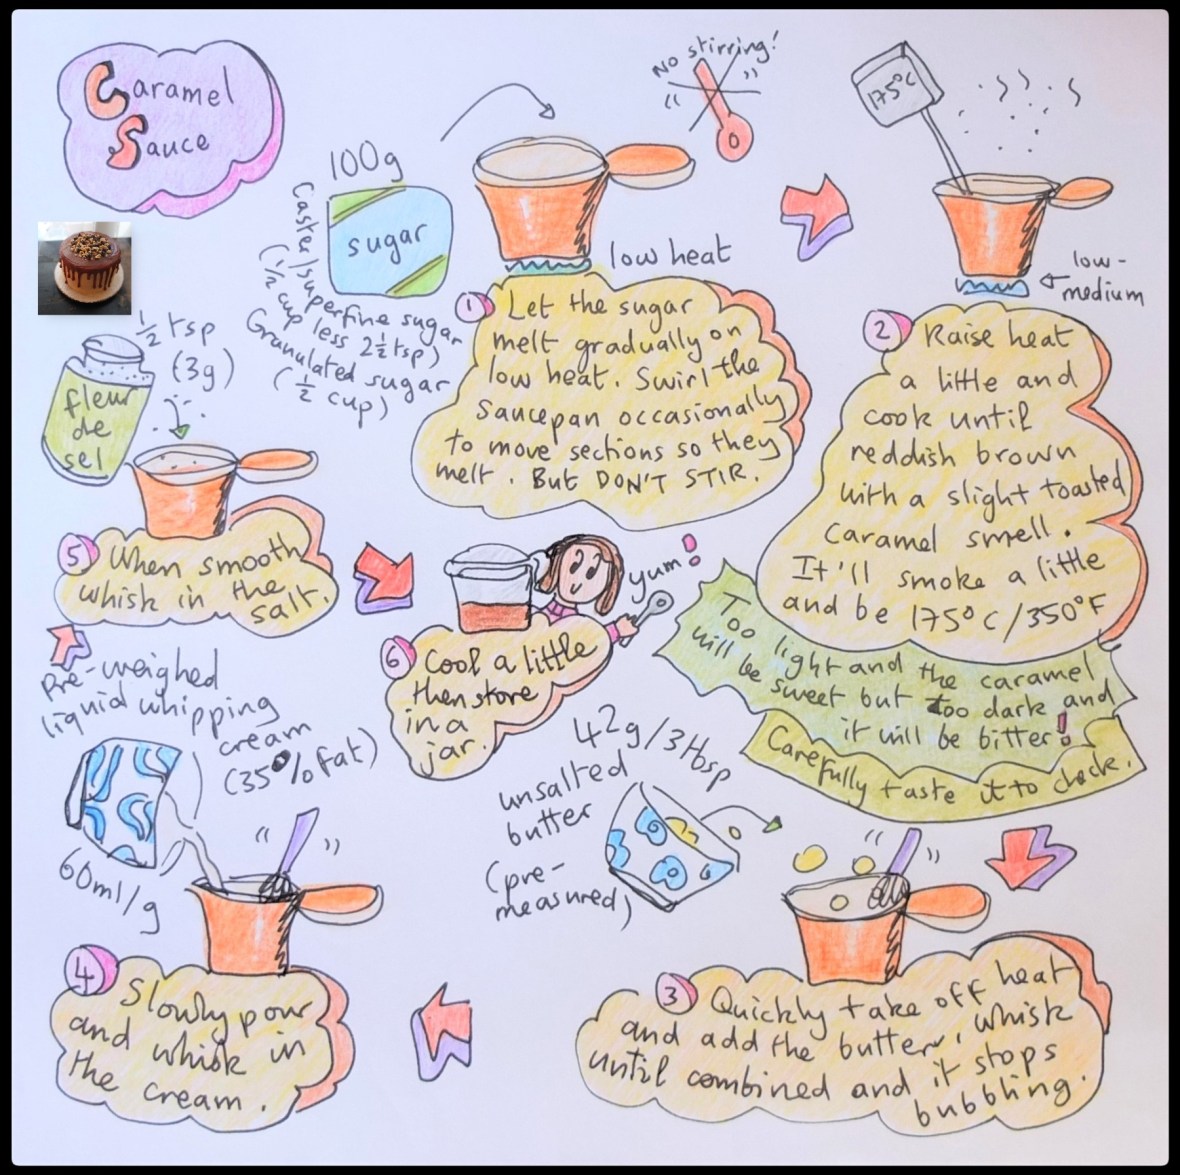 Caramel
Sauce
100g
sugar
Caster/superfine sugar
(½ cup less 2½ tsp)
Granulated sugar
(½ cup)
No stirring!
low heat
1
Let the sugar
melt gradually on
low heat. Swirl the
saucepan occasionally
to move sections so they
melt. But DON'T STIR.
175°C
low-
medium
2
Raise heat
a little and
cook until
reddish brown
with a slight toasted
caramel smell.
It'll smoke a little
and be 175°C/350°F
Too light and the caramel
will be sweet but too dark and
it will be bitter!
Carefully taste it to check.
42g/3tbsp
unsalted
butter
(pre-
measured)
3
Quickly take off heat
and add the butter, whisk
until combined and it stops
bubbling.
Pre-weighed
liquid whipping
cream
(35% fat)
60ml/g
4
Slowly pour
and whisk in
the cream.
½ tsp
(3g)
fleur
de
sel
5
When smooth
whisk in the
salt.
yum!
6
Cool a little
then store
in a
jar.